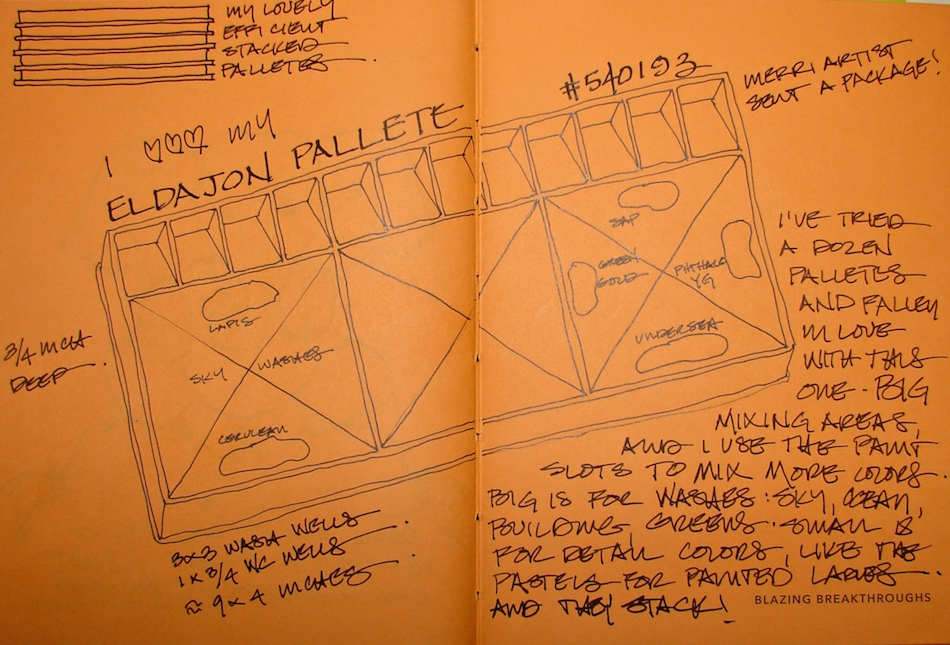 MY LOVELY
EFFICIENT
STACKED
PALLETES.
I ♡♡♡ MY
ELDAJON PALLETE
#540193
MERRI ARTIST
SENT A PACKAGE!
SAP
GREEN
GOLD
PHTHALO
YG
UNDERSEA
LAPIS
SKY WASHES
CERULEAN
3/4 INCH
DEEP.
3x3 WASH WELLS.
1x3/4 WC WELLS.
≈ 9x4 INCHES
I'VE TRIED
A DOZEN
PALLETES
AND FALLEN
IN LOVE
WITH THIS
ONE-- BIG
MIXING AREAS,
AND I USE THE PAINT
SLOTS TO MIX MORE COLORS.
BIG IS FOR WASHES: SKY, OCEAN,
BUILDING, GREENS. SMALL IS
FOR DETAIL COLORS, LIKE THE
PASTELS FOR PAINTED LADIES.
AND THEY STACK!
BLAZING BREAKTHROUGHS